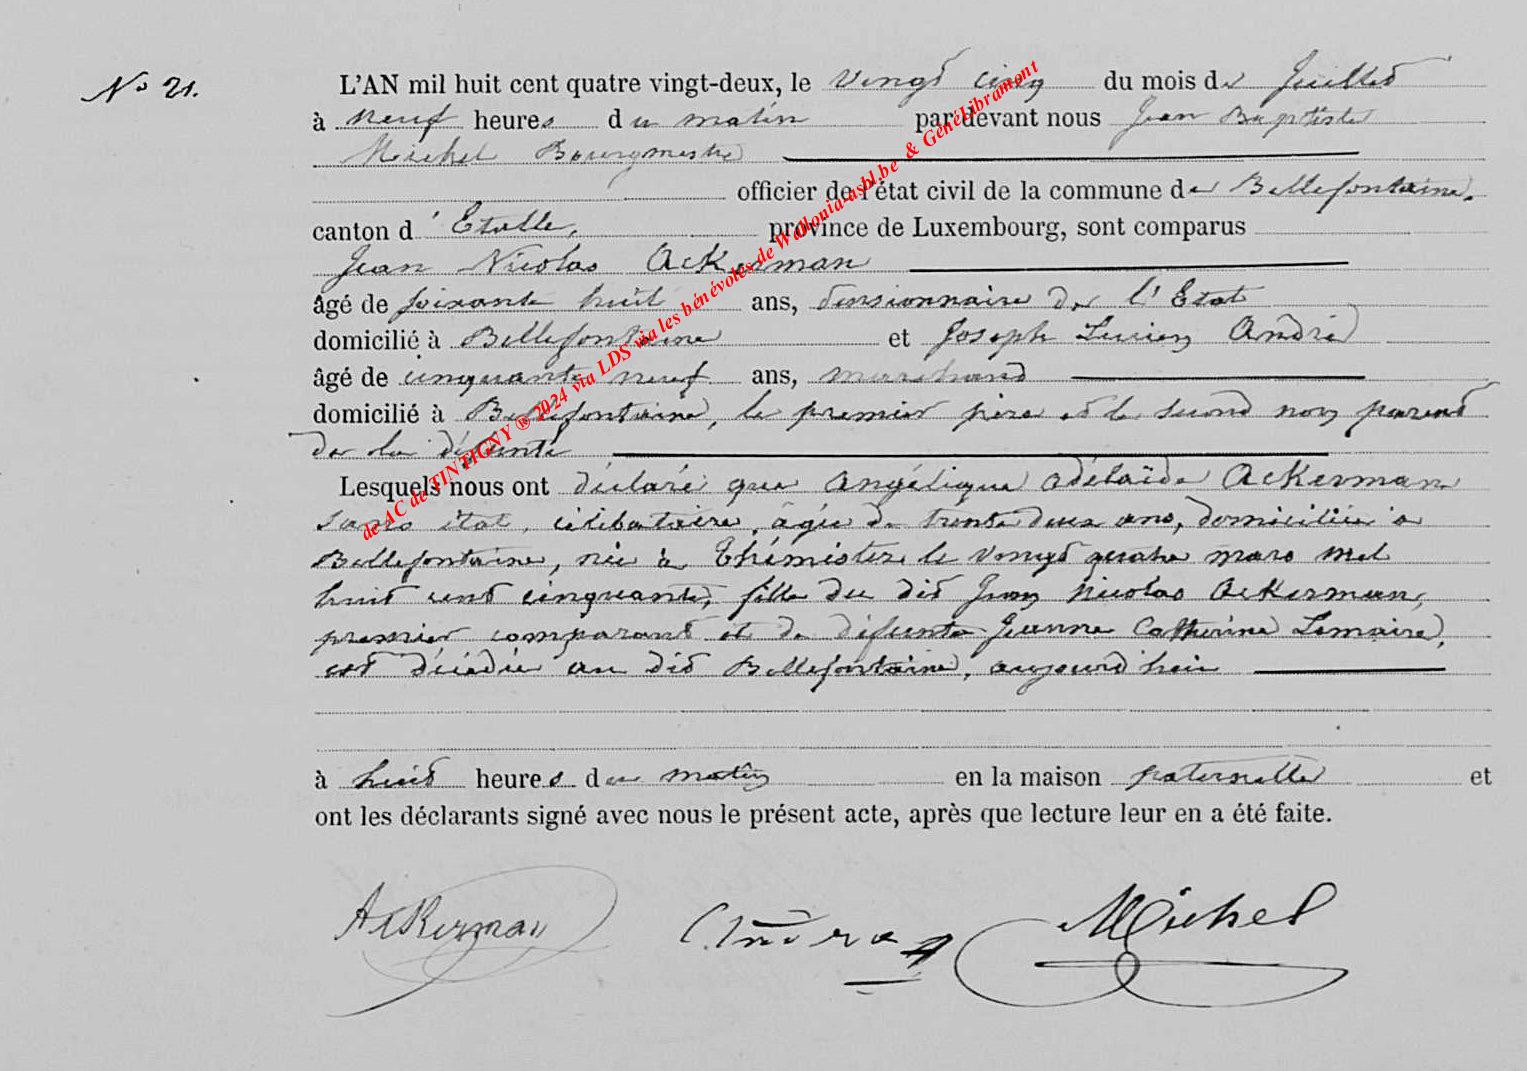 No 21.
L'AN mil huit cent quatre vingt-deux, le vingt cinq du mois de Juillet
à neuf heures du matin par devant nous Jean Baptiste
Michel Bourgmestre
officier de l'état civil de la commune de Bellefontaine,
canton d'Etalle, province de Luxembourg, sont comparus
Jean Nicolas Ackerman
âgé de soixante huit ans, pensionnaire de l'Etat
domicilié à Bellefontaine et Joseph Lucien André
âgé de cinquante neuf ans, marchand
domicilié à Bellefontaine, le premier père et le second non parent
de la défunte
Lesquels nous ont déclaré que Angélique Adélaïde Ackerman
sans état, célibataire, âgée de trente deux ans, domiciliée à
Bellefontaine, née à Thimister le vingt quatre mars mil
huit cent cinquante, fille du dit Jean Nicolas Ackerman,
premier comparant et de défunte Jeanne Catherine Lemaire,
est décédée au dit Bellefontaine, aujourd'hui
à huit heures du matin en la maison paternelle et
ont les déclarants signé avec nous le présent acte, après que lecture leur en a été faite.
Ackerman Michel
de AC de TINTIGNY ® 2024 via LDS via les bénévoles de Wallonia-asbl.be & GénéLibramont